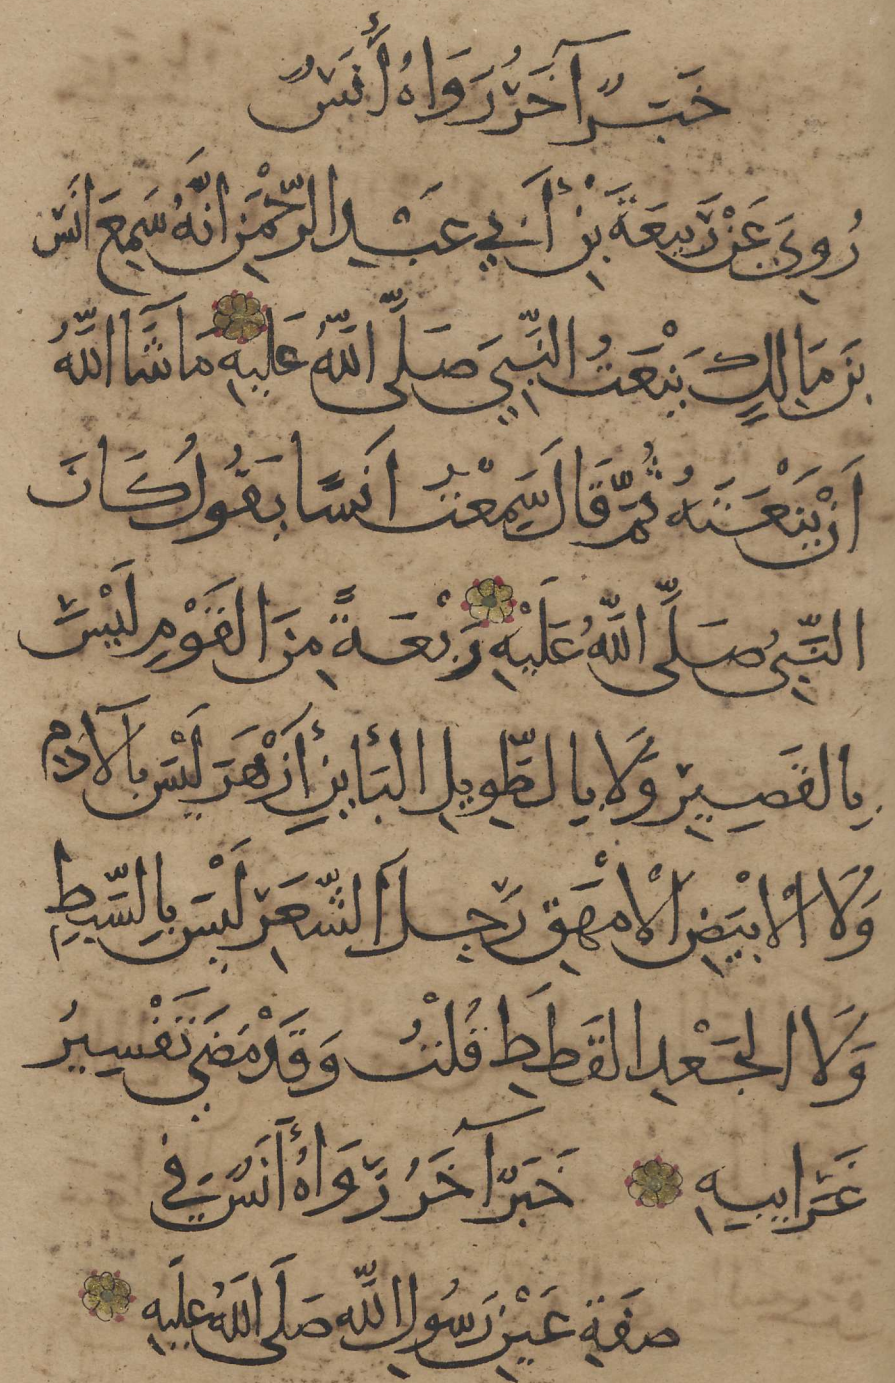 خَبَرٌ آخَرُ رَوَاهُ أَنَسٌ
رُوِيَ عَنْ رَبِيعَةَ بْنِ أَبِي عَبْدِ الرَّحْمٰنِ انَّهُ سَمِعَ انَسَ
بنَ مَالِكٍ يَنْعَتُ النَّبِيَّ صَلَّى اللَّهُ عَلَيهِ مَا شَّا اللَّهُ
اَنْ يَنْعَتَهُ ثُمَّ قَالَ سَمِعْتُ اَنَسًا يَقُولُ كَانَ
النَّبِيُّ صَلَّى اللَّهُ عَلَيْهِ رَبْعَةً مِنَ القَوْمِ لَيْسَ
بِالقَصِيرِ وَلَا بِالطَّوِيلِ البَأينِ أَزْهَرَ لَيْسَ بالآدِمِ
وَلَا الْابْيَضِ الْامْهَقِ رَجِلَ الشَّعَرِ لَيْسَ بِالسَّبِطِ
وَلَا الجَعْدِ القَطَطِ قُلْتُ وَقَدْ مَضَى تَفْسِيرُ
غَرَايبِهِ خَبَرٌ آخَرُ رَوَاهُ أَنَسٌ فِي
صفَةِ عَيْنِ رَسُولِ اللَّهِ صَلَّى اللَّهُ عَلَيهِ